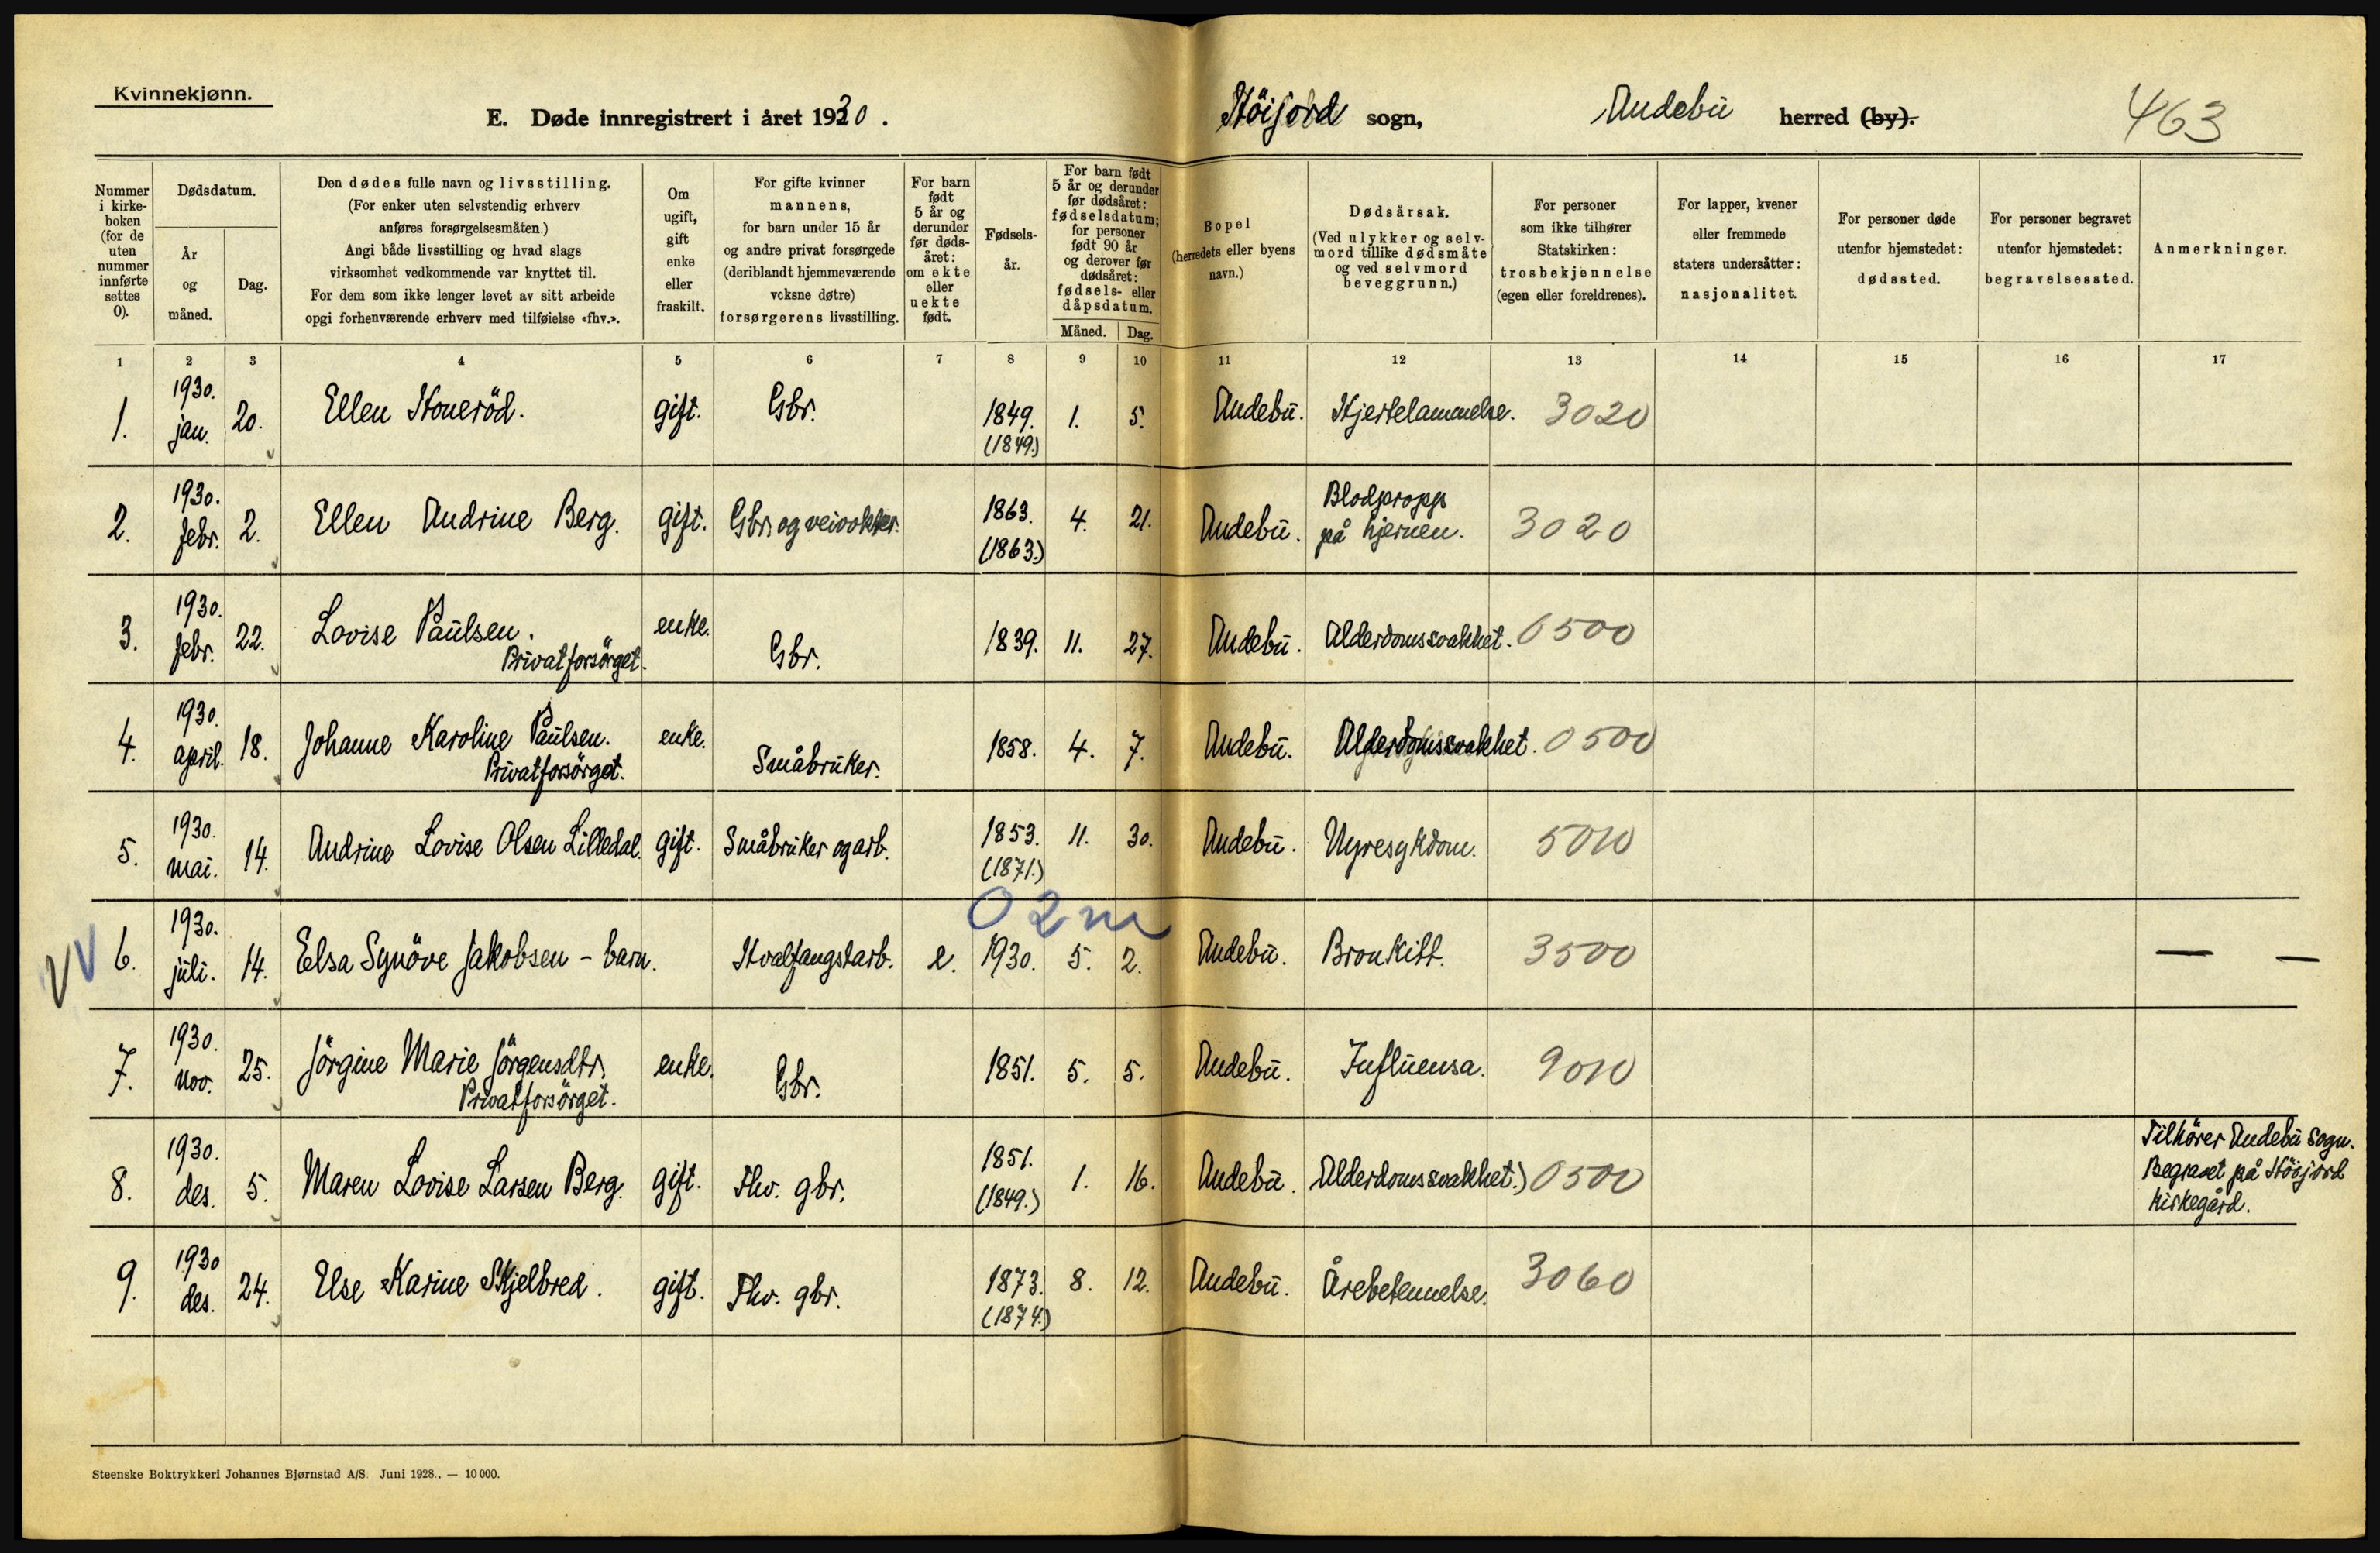 Kvinnekjønn.
E. Døde innregistrert i året 1930.
Höijord sogn, Andebu herred (by).
463
Nummer i kirke-boken (for de uten nummer innførte settes 0).
Dødsdatum.
År og måned.
Dag.
Den dødes fulle navn og livsstilling.
(For enker uten selvstendig erhverv
anføres forsørgelsesmåten.)
Angi både livsstilling og hvad slags
virksomhet vedkommende var knyttet til.
For dem som ikke lenger levet av sitt arbeide
opgi forhenværende erhverv med tilføielse «fhv.».
Om ugift, gift enke eller fraskilt.
For gifte kvinner
mannens,
for barn under 15 år
og andre privat forsørgede
(deriblandt hjemmeværende
voksne døtre)
forsørgerens livsstilling.
For barn født 5 år og derunder før døds-året: om ekte eller uekte født.
Fødsels-år.
For barn født
5 år og derunder
før dødsåret:
fødselsdatum;
for personer
født 90 år
og derover før
dødsåret:
fødsels- eller
dåpsdatum.
Måned. Dag.
Bopel
(herredets eller byens
navn.)
Dødsårsak.
(Ved ulykker og selv-
mord tillike dødsmåte
og ved selvmord
beveggrunn.)
For personer
som ikke tilhører
Statskirken:
trosbekjennelse
(egen eller foreldrenes).
For lapper, kvener
eller fremmede
staters undersåtter:
nasjonalitet.
For personer døde
utenfor hjemstedet:
dødssted.
For personer begravet
utenfor hjemstedet:
begravelsessted.
Anmerkninger.
1 2 3 4 5 6 7 8 9 10 11 12 13 14 15 16 17
1. 1930. jan. 20. Ellen Honeröd. gift. Gbr. 1849. (1849.) 1. 5. Andebu. Hjertelammelse. 3020
2. 1930. febr. 2. Ellen Andrine Berg. gift. Gbr. og veivokter. 1863. (1863.) 4. 21. Andebu. Blodpropp på hjernen. 3020
3. 1930. febr. 22. Lovise Paulsen. Privatforsörget. enke. Gbr. 1839. 11. 27. Andebu. Alderdomssvakhet. 0500
4. 1930. april. 18. Johanne Karoline Paulsen. Privatforsörget. enke. Småbruker. 1858. 4. 7. Andebu. Alderdomssvakhet. 0500
5. 1930. mai. 14. Andrine Lovise Olsen Lilledal. gift. Småbruker og arb. 1853. (1871.) 11. 30. Andebu. Nyresykdom. 5010
0 2 m
6. 1930. juli. 14. Elsa Synöve Jakobsen - barn. Hvalfangstarb. e. 1930. 5. 2. Andebu. Bronkitt. 3500 — —
7. 1930. nov. 25. Jörgine Marie Jörgensdtr. Privatforsörget. enke. Gbr. 1851. 5. 5. Andebu. Influensa. 9010
8. 1930. des. 5. Maren Lovise Larsen Berg. gift. Fhv. gbr. 1851. (1849.) 1. 16. Andebu. Alderdomssvakhet.) 0500 Tilhörer Andebu sogn. Begravet på Höijord kirkegård.
9. 1930 des. 24. Else Karine Skjelbred. gift. Fhv. gbr. 1873. (1874.) 8. 12. Andebu. Årebetennelse. 3060
Steenske Boktrykkeri Johannes Bjørnstad A/S. Juni 1928.. — 10 000.